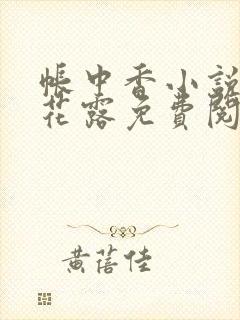 帳中香小說
花露免費閱
黃蓓佳